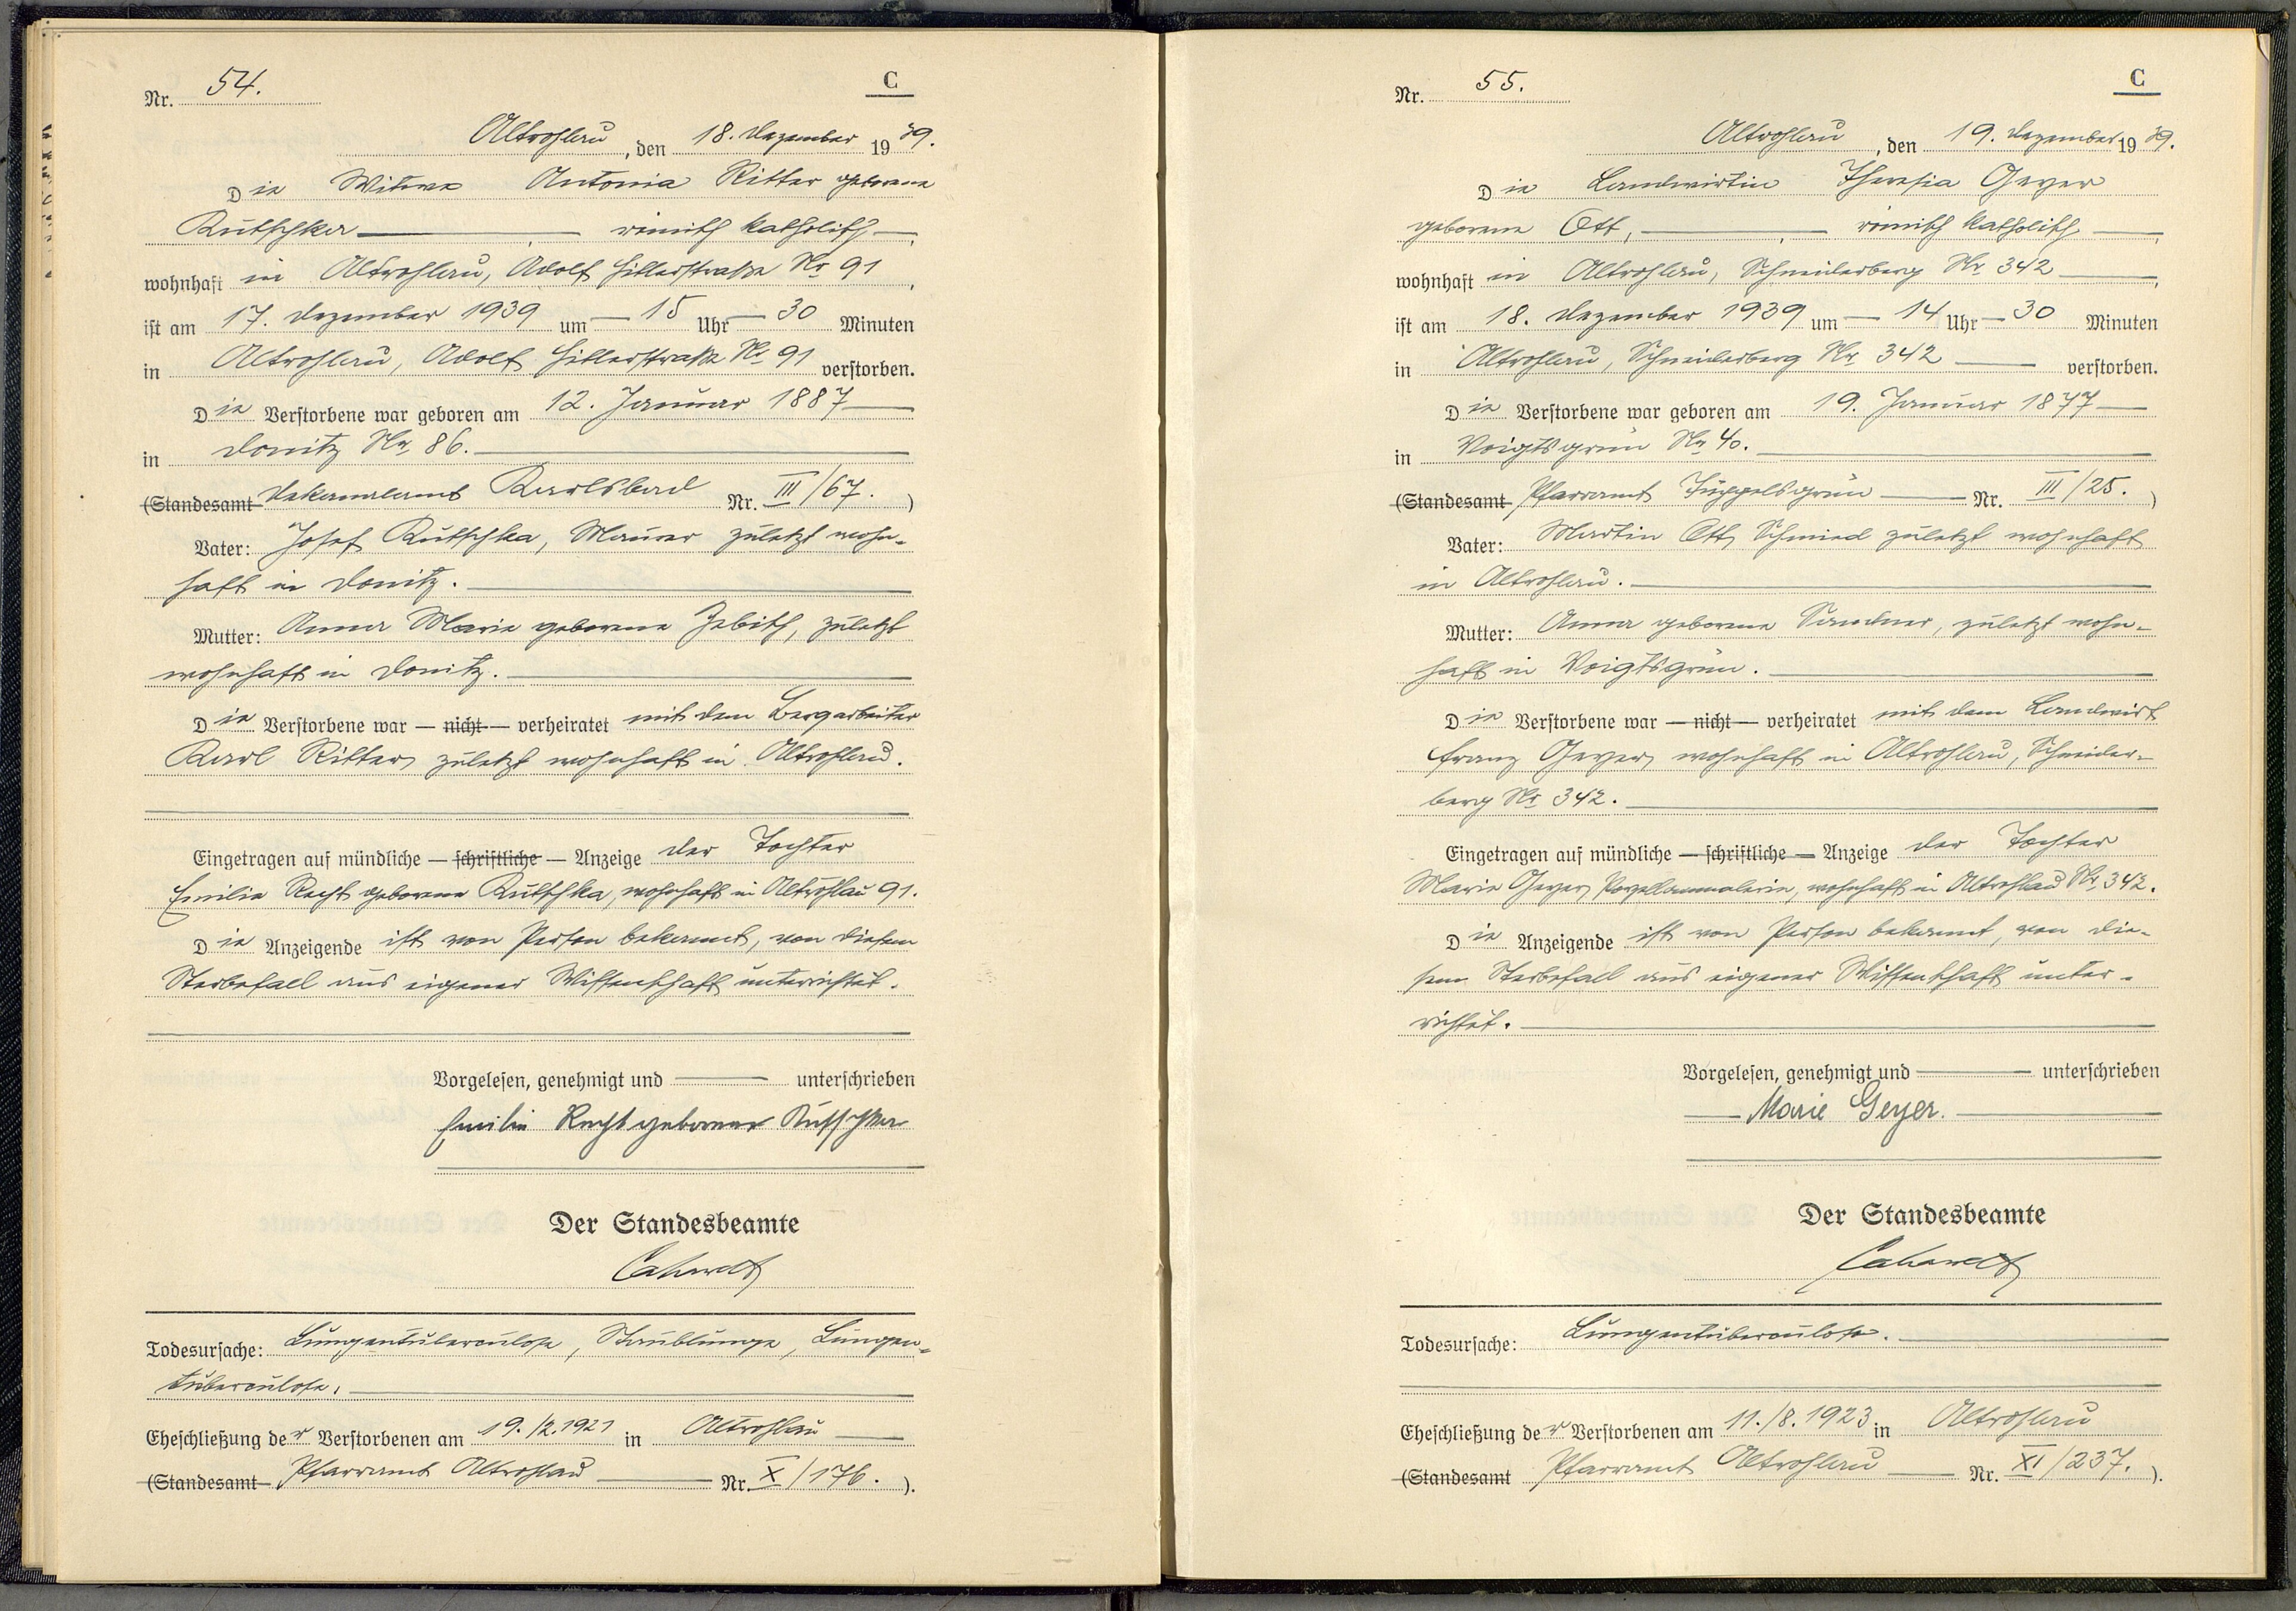 Nr. 54.
C
Altrohlau, den 18. Dezember 1939.
Die Witwe Antonia Ritter geborene
Kutschker römisch katholisch,
wohnhaft in Altrohlau, Adolf Hitlerstraße Nr 91,
ist am 17. Dezember 1939 um 15 Uhr 30 Minuten
in Altrohlau, Adolf Hitlerstraße Nr 91 verstorben.
Die Verstorbene war geboren am 12. Januar 1887
in Donitz Nr. 86.
(Standesamt Dekanalamt Karlsbad Nr. III/67.)
Vater: Josef Kutschka, Maurer zuletzt wohn-
haft in Donitz.
Mutter: Anna Marie geborene, zuletzt
wohnhaft in Donitz.
Die Verstorbene war — nicht — verheiratet mit dem Bergarbeiter
Karl Ritter, zuletzt wohnhaft in Altrohlau.
Eingetragen auf mündliche — schriftliche — Anzeige der Tochter
Emilie geborene Kutschka, wohnhaft in Altrohlau 91.
Die Anzeigende ist von Person bekannt, von diesem
Sterbefall aus eigener Wissenschaft unterrichtet.
Vorgelesen, genehmigt und unterschrieben
Emilie geborene Kutschker
Der Standesbeamte
Todesursache: Lungentuberculose, Lungen-
tuberculose.
Eheschließung der Verstorbenen am 19./2.1921 in Altrohlau
(Standesamt Pfarramt Altrohlau Nr. X/176.).
Nr. 55.
C
Altrohlau, den 19. Dezember 1939.
Die Landwirtin Theresia Geyer
geborene Ott, römisch katholisch,
wohnhaft in Altrohlau, Schneiderberg Nr. 342,
ist am 18. Dezember 1939 um 14 Uhr 30 Minuten
in Altrohlau, Schneiderberg Nr. 342 verstorben.
Die Verstorbene war geboren am 19. Januar 1877
in Voigtsgrün Nr. 40.
(Standesamt Pfarramt Nr. III/25.)
Vater: Martin Ott, Schmied zuletzt wohnhaft
in Altrohlau.
Mutter: Anna geborene Sandner, zuletzt wohn-
haft in Voigtsgrün.
Die Verstorbene war — nicht — verheiratet mit dem Landwirt
Franz Geyer, wohnhaft in Altrohlau, Schneider-
berg Nr 342.
Eingetragen auf mündliche — schriftliche — Anzeige der Tochter
Marie Geyer, Porzellanmalerin, wohnhaft in Altrohlau Nr. 342.
Die Anzeigende ist von Person bekannt, von die-
sem Sterbefall aus eigener Wissenschaft unter-
richtet.
Vorgelesen, genehmigt und unterschrieben
Marie Geyer.
Der Standesbeamte
Todesursache: Lungentuberculose.
Eheschließung der Verstorbenen am 11./8.1923 in Altrohlau
(Standesamt Pfarramt Altrohlau Nr. XI/237.).